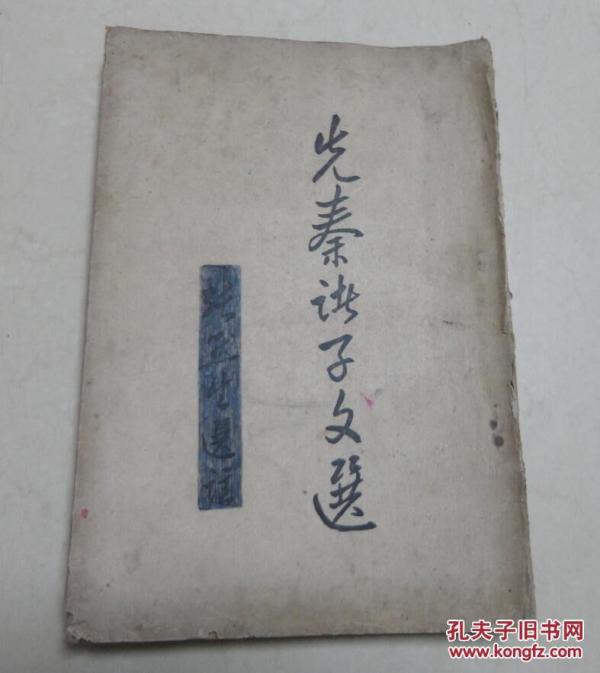 先秦諸子文選
選註
孔夫子旧书网
www.kongfz.com